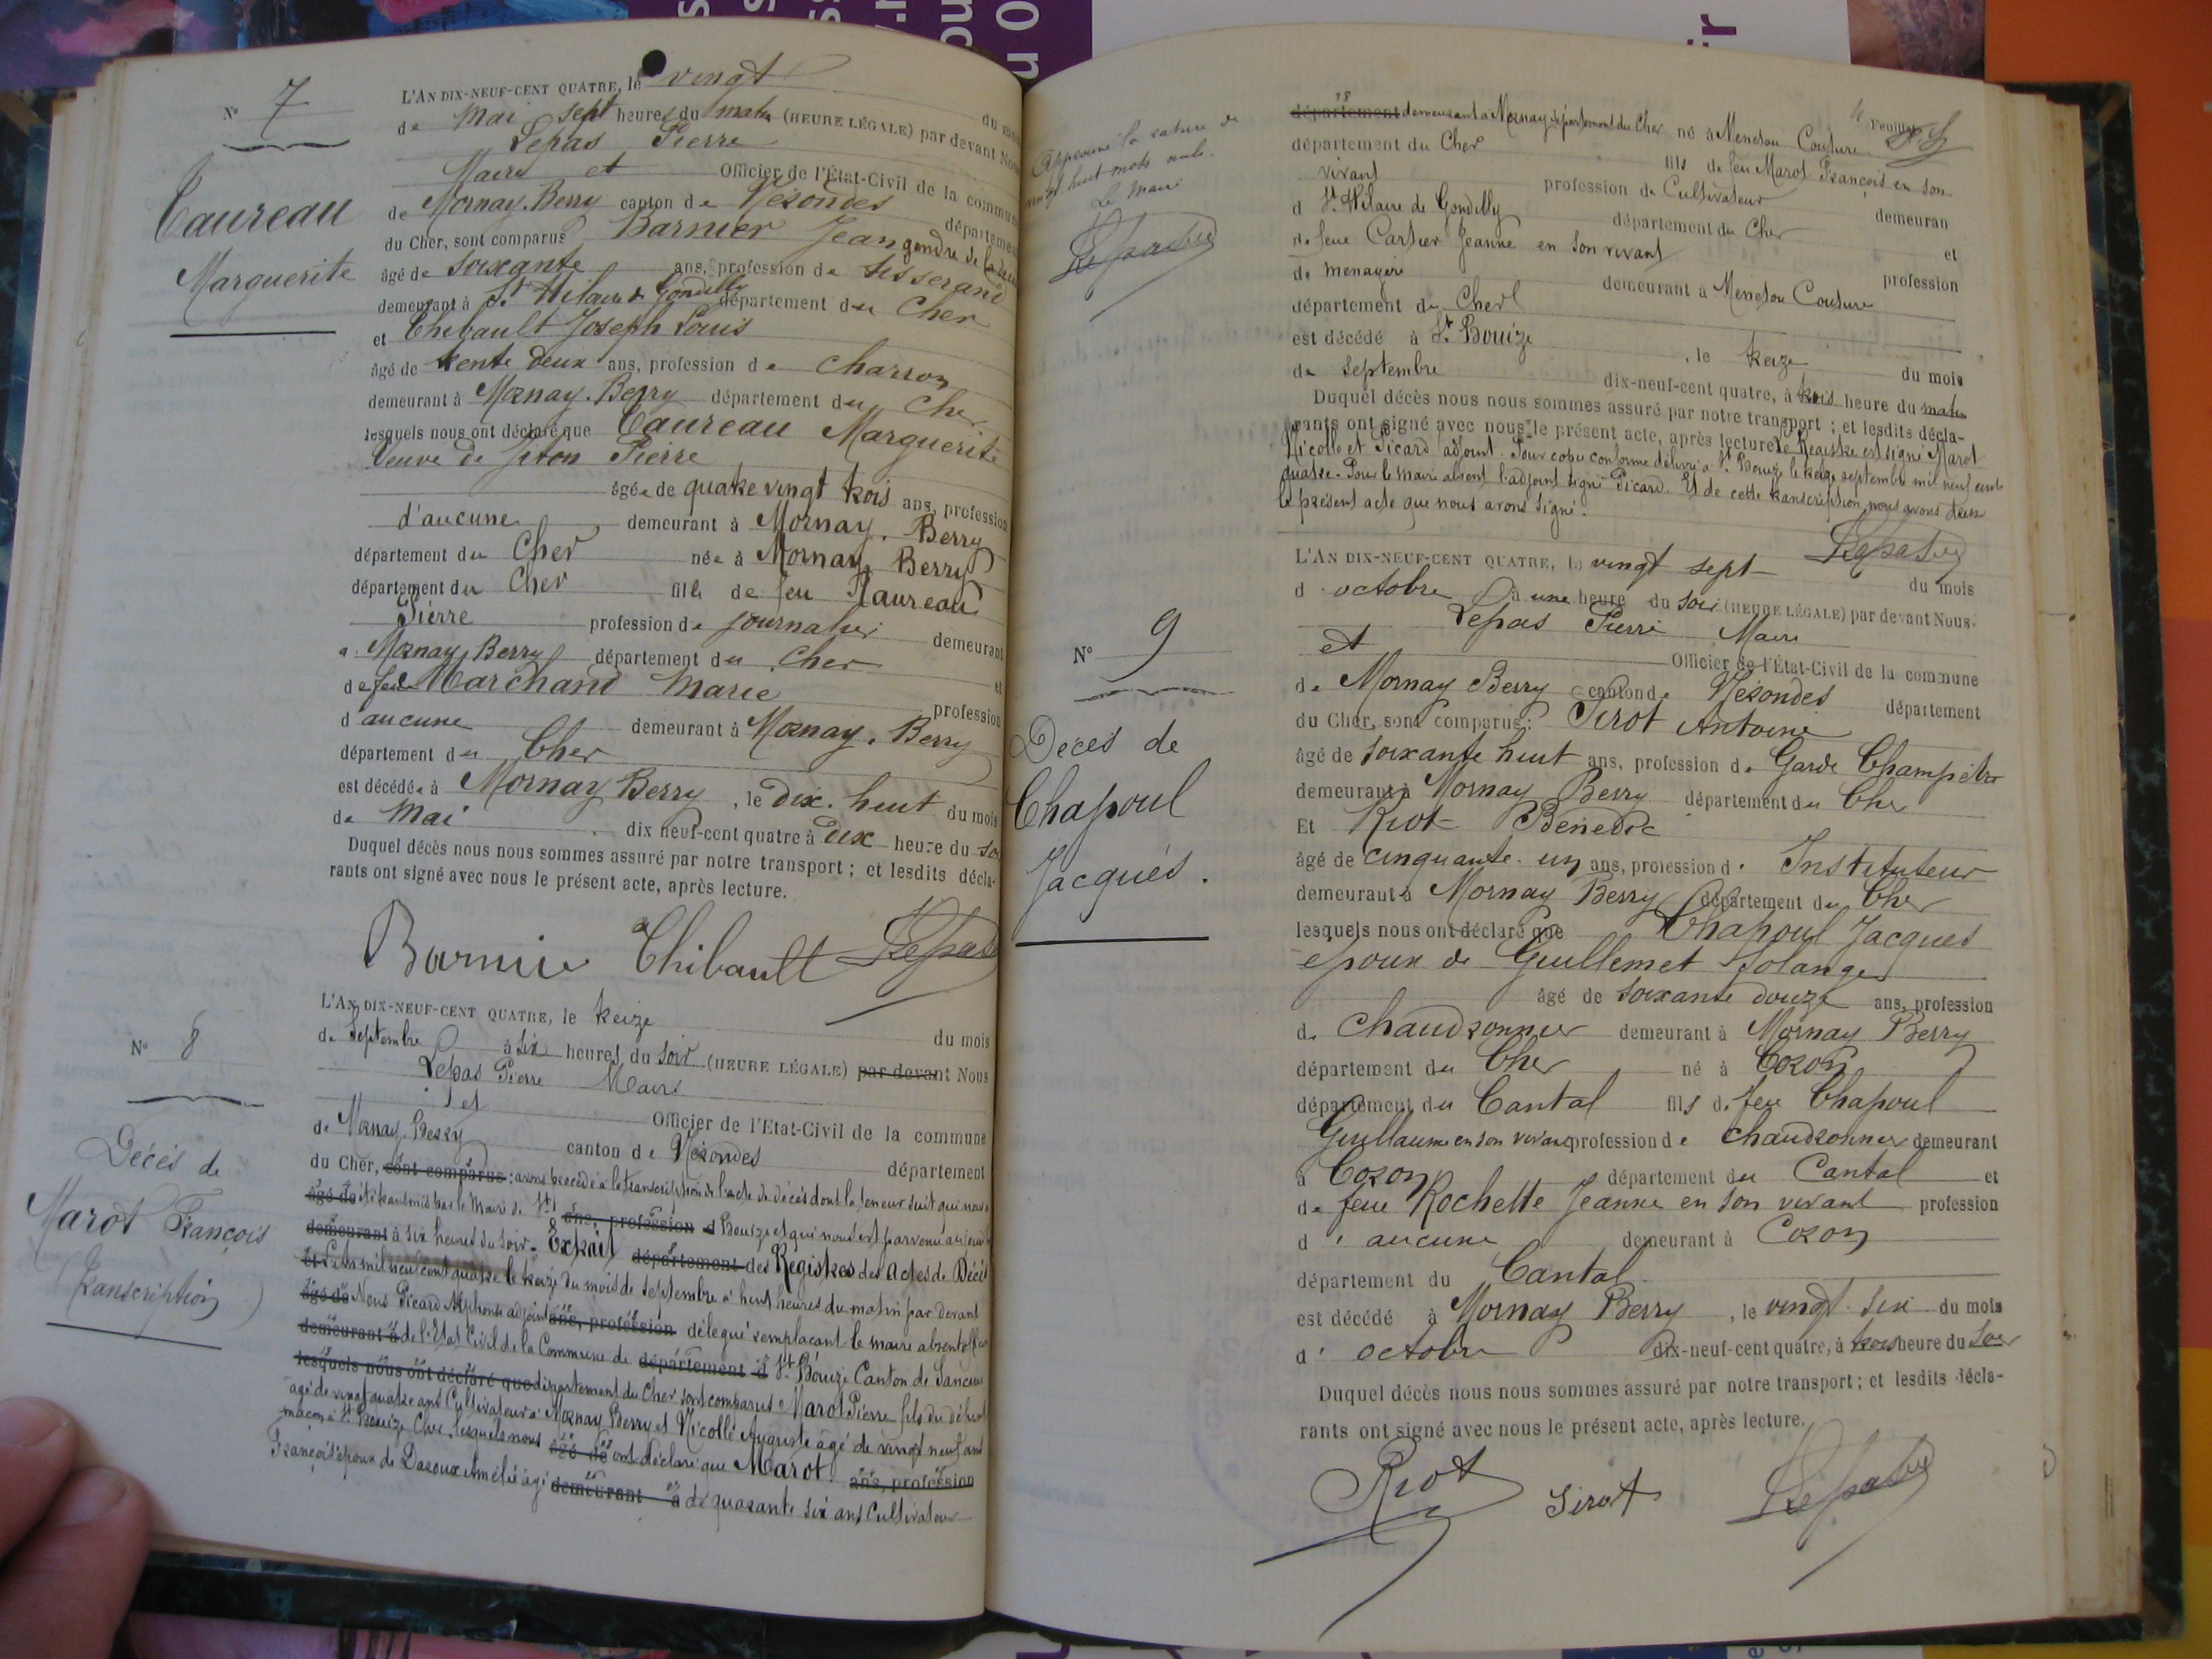 N° 7
Taureau
Marguerite
L'AN DIX-NEUF-CENT QUATRE, le vingt du mois
de Mai sept heures du matin (HEURE LÉGALE) par devant Nous
Lepas Pierre
Maire et Officier de l'État-Civil de la commune
de Mornay-Berry canton de Nérondes département
du Cher, sont comparus Barnier Jean gendre de la
âgé de soixante ans, profession de tisserand
demeurant à St Hilaire de Gondilly département du Cher
et Thibault Joseph Louis
âgé de trente deux ans, profession de charron
demeurant à Mornay-Berry département du Cher
lesquels nous ont déclaré que Taureau Marguerite
Veuve de Pierre
âgée de quatre vingt trois ans, profession
d'aucune demeurant à Mornay-Berry
département du Cher née à Mornay Berry
département du Cher fille de feu Taureau
Pierre profession de journalier demeurant
a Mornay Berry département du Cher et
de feue Marchand Marie profession
d'aucune demeurant à Mornay-Berry
département du Cher
est décédée à Mornay Berry, le dix-huit du mois
de Mai dix neuf-cent quatre à dix heure du soir
Duquel décès nous nous sommes assuré par notre transport ; et lesdits décla-
rants ont signé avec nous le présent acte, après lecture.
Barnier Thibault Lepas
N° 8
Décès de
Marot François
(transcription)
L'AN DIX-NEUF-CENT QUATRE, le treize du mois
de Septembre à six heures du soir (HEURE LÉGALE) par devant Nous
Lepas Pierre Maire
et Officier de l'Etat-Civil de la commune
de Mornay-Berry canton de Nérondes département
du Cher, sont comparus : avons procédé à la transcription de l'acte de décès dont la teneur suit qui nous a
âgé de été transmis par le Maire de St ans, profession d Bouize et qui nous est parvenu aujourd'hui
demeurant à six heures du soir. Extrait département des Registres des actes de Décès
et L'an mil neuf cent quatre le treize du mois de Septembre à huit heures du matin par devant
âgé de Nous Picard Alphonse adjoint ans, profession délégué remplaçant le maire absent officier
demeurant à de l'Etat Civil de la Commune de département d St Bouize Canton de Sancerre
lesquels nous ont déclaré que département du Cher sont comparus Marot Pierre fils du défunt
âgé de vingt quatre ans Cultivateur à Mornay Berry et Nicolle Auguste âgé de vingt neuf ans
maçon à St Bouize Cher, lesquels nous âgé de ont déclaré que Marot ans, profession
François époux de Daroux Amélie âgé demeurant à de quarante six ans Cultivateur
Approuvé la rature de
vingt huit mots nuls.
Le Maire
Lepas
Feuillet
département demeurant à Mornay département du Cher né à Menetou Couture
département du Cher fils de feu Marot François en son
vivant profession de Cultivateur demeuran
d St Hilaire de Gondilly département du Cher et
de feue Cartier Jeanne en son vivant profession
de menagère demeurant à Menetou Couture
département du Cher
est décédé à St Bouize, le treize du mois
de Septembre dix-neuf-cent quatre, à trois heure du matin
Duquel décès nous nous sommes assuré par notre transport ; et lesdits décla-
rants ont signé avec nous le présent acte, après lecture. Le Registre est signé Marot
Nicolle et Picard adjoint. Pour copie conforme délivré à St Bouize le treize septembre mil neuf cent
quatre. Pour le maire absent l'adjoint signé Picard. Et de cette transcription nous avons dressé
le présent acte que nous avons signé.
Lepas
N° 9
Décès de
Chapoul
Jacques.
L'AN DIX-NEUF-CENT QUATRE, le vingt sept du mois
d'octobre à une heure du soir (HEURE LÉGALE) par devant Nous.
Lepas Pierre Maire
et Officier de l'État-Civil de la commune
de Mornay Berry canton de Nérondes département
du Cher, sont comparus : Sirot Antoine
âgé de soixante huit ans, profession de Garde Champêtre
demeurant à Mornay Berry département du Cher
Et Riot Benedic
âgé de cinquante-un ans, profession d'Instituteur
demeurant à Mornay Berry département du Cher
lesquels nous ont déclaré que Chapoul Jacques
époux de Guillemet Solange
âgé de soixante douze ans, profession
de Chaudronnier demeurant à Mornay Berry
département du Cher né à Cozon
département du Cantal fils de feu Chapoul
Guillaume en son vivant profession de chaudronnier demeurant
à Cozon département du Cantal et
de feue Rochette Jeanne en son vivant profession
d'aucune demeurant à Cozon
département du Cantal.
est décédé à Mornay Berry, le vingt-six du mois
d'octobre dix-neuf-cent quatre, à trois heure du soir
Duquel décès nous nous sommes assuré par notre transport ; et lesdits décla-
rants ont signé avec nous le présent acte, après lecture.
Riot Sirot Lepas